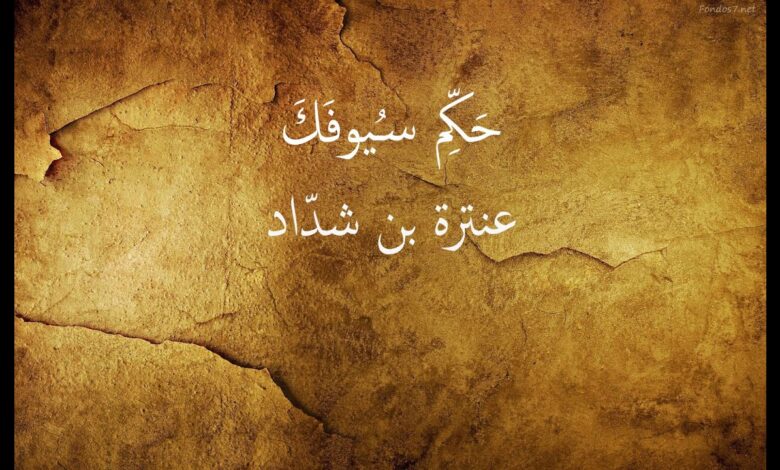 Fondos7.net
حَكِّم سيُوفَكَ
عنترة بن شدّاد